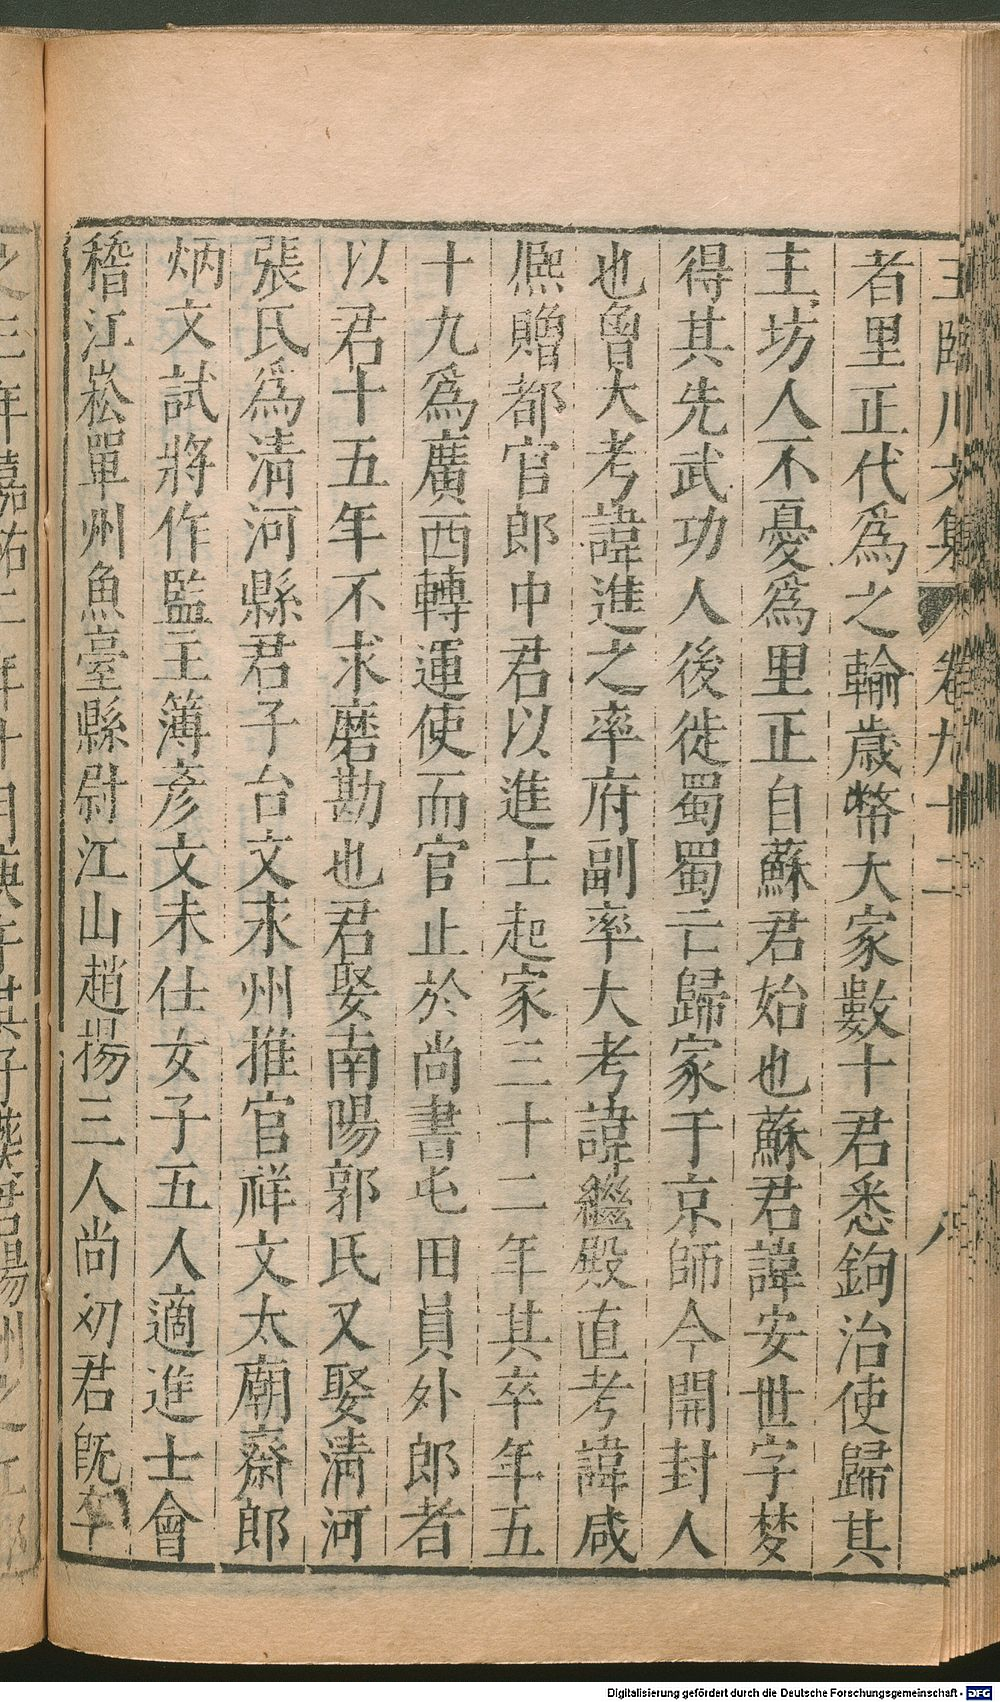 王臨川文集 卷九十二 八
者里正代爲之輸歲幣大家數十君悉鉤治使歸其
主坊人不憂爲里正自蘇君始也蘇君諱安世字夢
得其先武功人後徙蜀蜀亡歸家于京師今開封人
也曾大考諱進之率府副率大考諱繼殿直考諱咸
熈贈都官郎中君以進士起家三十二年其卒年五
十九爲廣西轉運使而官止於尚書屯田員外郎者
以君十五年不求磨勘也君娶南陽郭氏又娶淸河
張氏爲淸河縣君子台文永州推官祥文太廟齋郎
炳文試將作監主簿彦文未仕女子五人適進士會
稽江崧單州魚臺縣尉江山趙揚三人尚幼君旣卒
之三年嘉祐二年十月庚午其子葬君揚州之江都
Digitalisierung gefördert durch die Deutsche Forschungsgemeinschaft - DFG